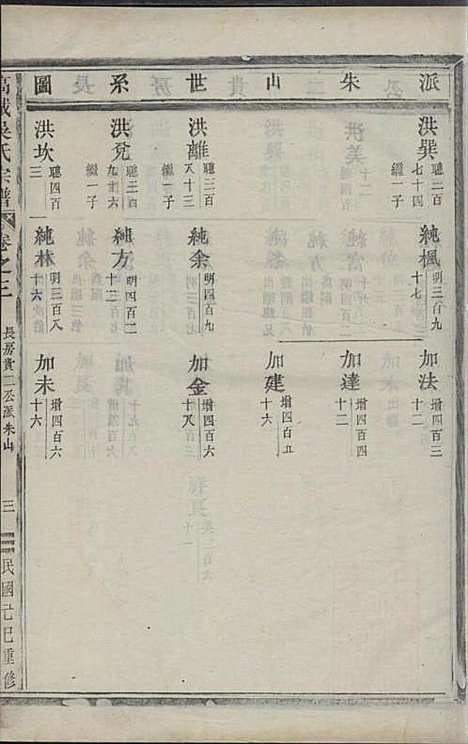 派朱山世系圖
洪巽
聰二百七十四
繼一子
洪離
聰三百八十三
繼一子
洪兌
聰三百九十六
繼一子
洪坎
聰四百三
純楓
明三百九十七
純余
明四百九
純方
明四百二十二
純林
明三百八十六
加法
增四百三十二
加達
增四百四十二
加建
增四百五十六
加金
增四百六十八
加未
增四百六十六
吳氏宗譜
卷之三
長房貴二丞派朱山
三
民國己巳重修